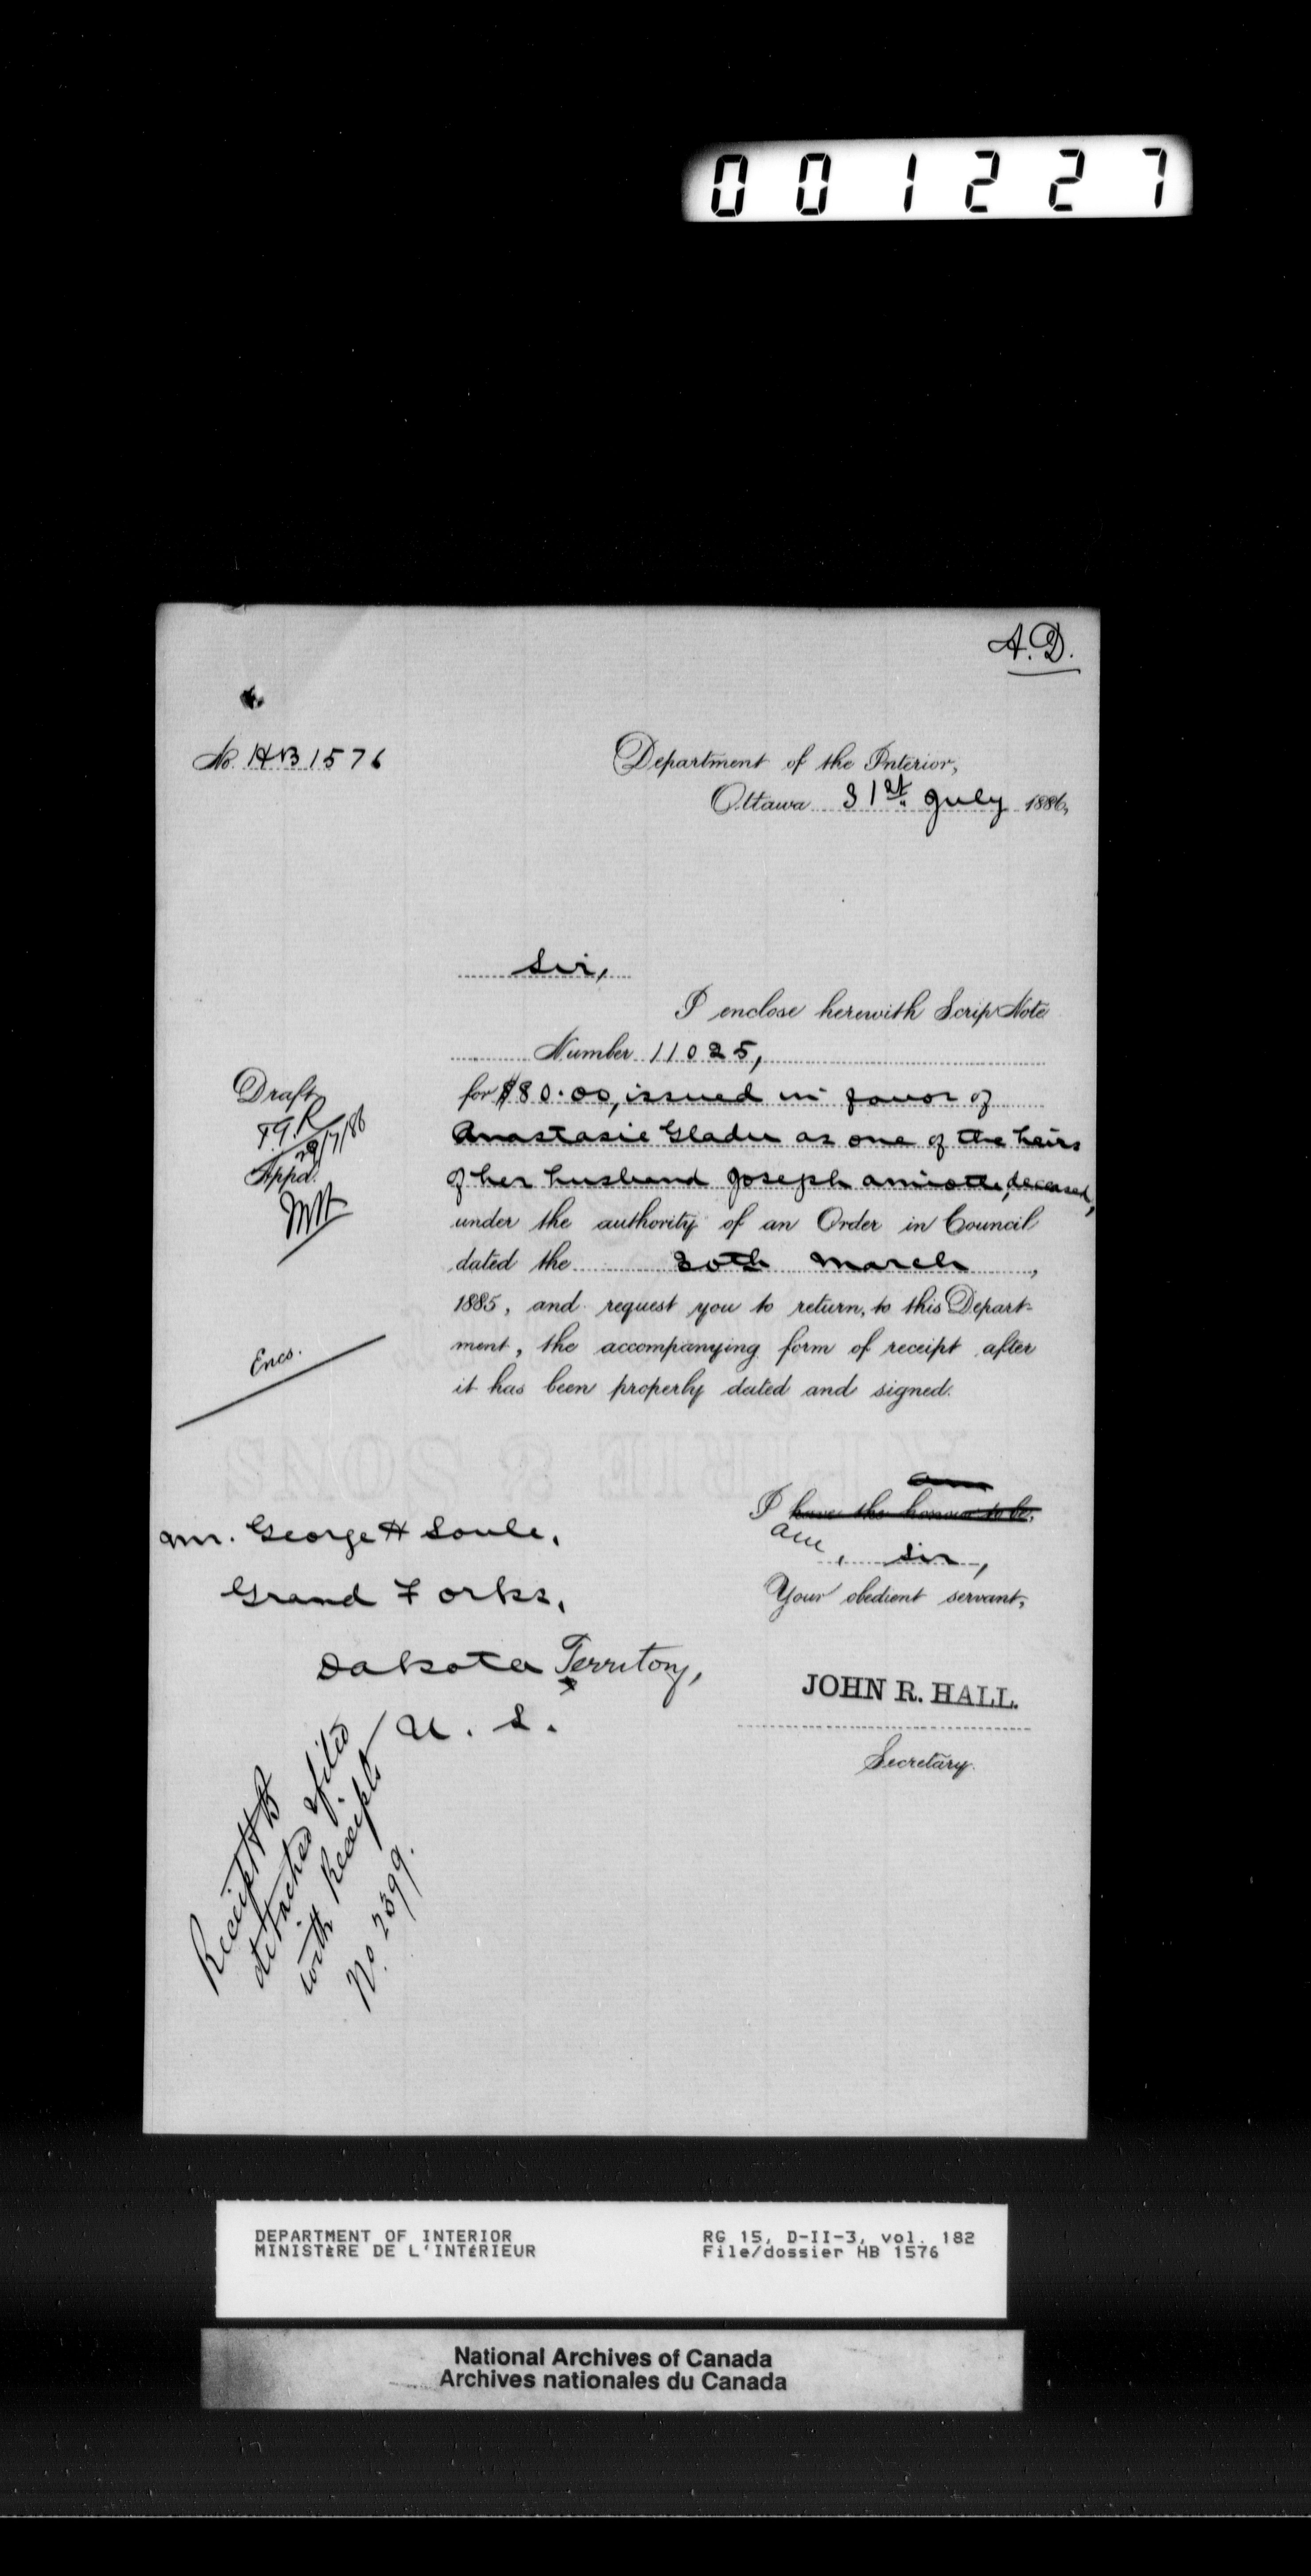 001227
A.D.
No. HB 1576
Department of the Interior,
Ottawa 31st. July 1886,
Sir,
I enclose herewith Scrip Note
Number 11025,
for $80.00, issued in favor of
Anastasie Gladu as one of the heirs
of her husband Joseph Amiotte, deceased,
under the authority of an Order in Council
dated the 20th March,
1885, and request you to return, to this Depart-
ment, the accompanying form of receipt after
it has been properly dated and signed.
Draft
29/7/86
Appd.
Encs.
am
I have the honour to be,
am, Sir,
Your obedient servant,
JOHN R. HALL.
Secretary.
Mr. George H Soule,
Grand Forks,
Dakota Territory,
U. S.
Receipt HB
detached & filed
with Receipts
No. 2399.
DEPARTMENT OF INTERIOR
MINISTÈRE DE L'INTÉRIEUR
RG 15, D-II-3, vol. 182
File/dossier HB 1576
National Archives of Canada
Archives nationales du Canada